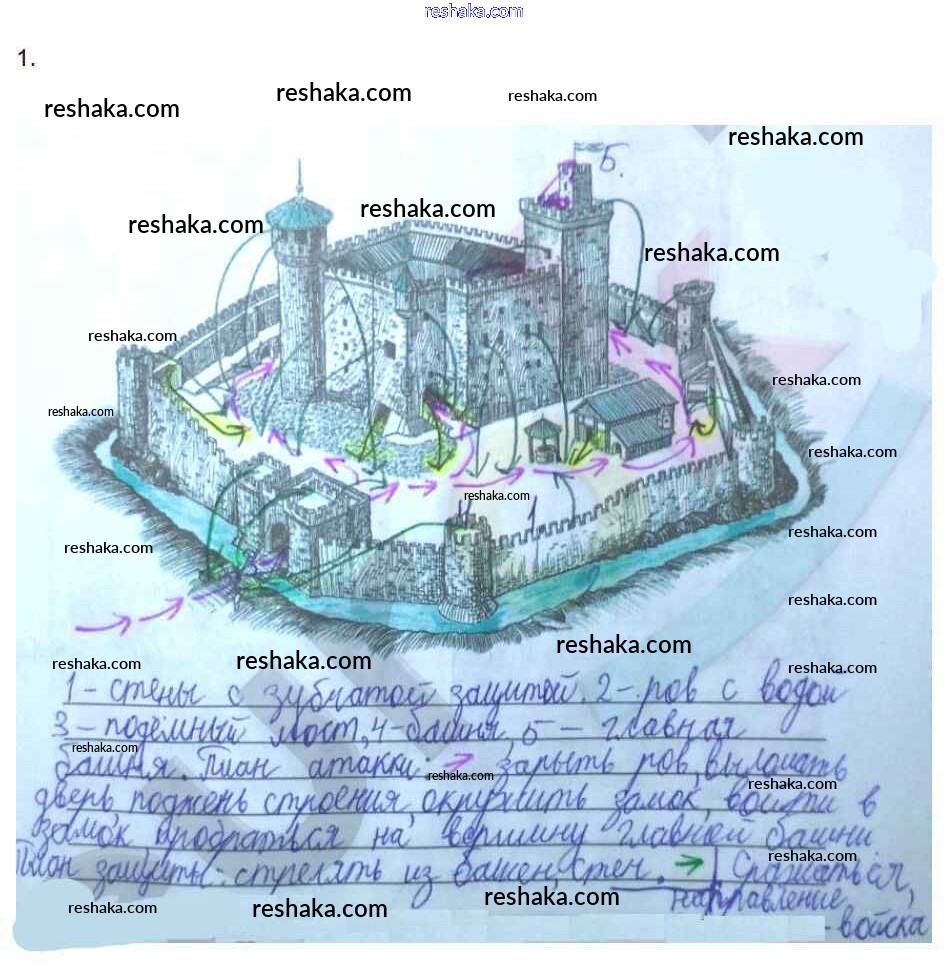 reshaka.com
1.
reshaka.com
reshaka.com
reshaka.com
reshaka.com
5.
reshaka.com
reshaka.com
reshaka.com
reshaka.com
reshaka.com
reshaka.com
reshaka.com
reshaka.com
4
1
reshaka.com
reshaka.com
2
reshaka.com
reshaka.com
reshaka.com
reshaka.com
reshaka.com
1 - стены с зубчатой защитой, 2 - ров с водой
3 - подёмный мост, 4 - башня, 5 - главная
reshaka.com
башня. План атакки: → зарыть ров, выломать
reshaka.com
reshaka.com
дверь, поджень строения, окружить замок, войти в
замок, пробраться на вершину главной башни
reshaka.com
План защиты: стрелять из башен, стен. → Сражаться,
направление
reshaka.com
reshaka.com
reshaka.com
- войска